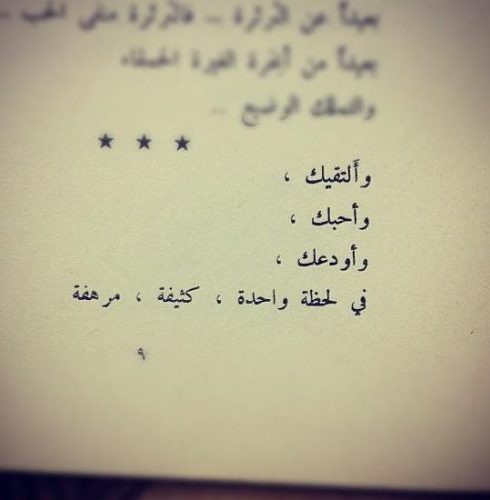 بعيداً عن الثرثرة .. فالثرثرة منفى الحب ..
بعيداً من أبخرة الغيرة الحمقاء
والتملك الوضيع ..
★ ★ ★
وألتقيك ،
وأحبك ،
وأودعك ،
في لحظة واحدة ، كثيفة ، مرهفة
٩